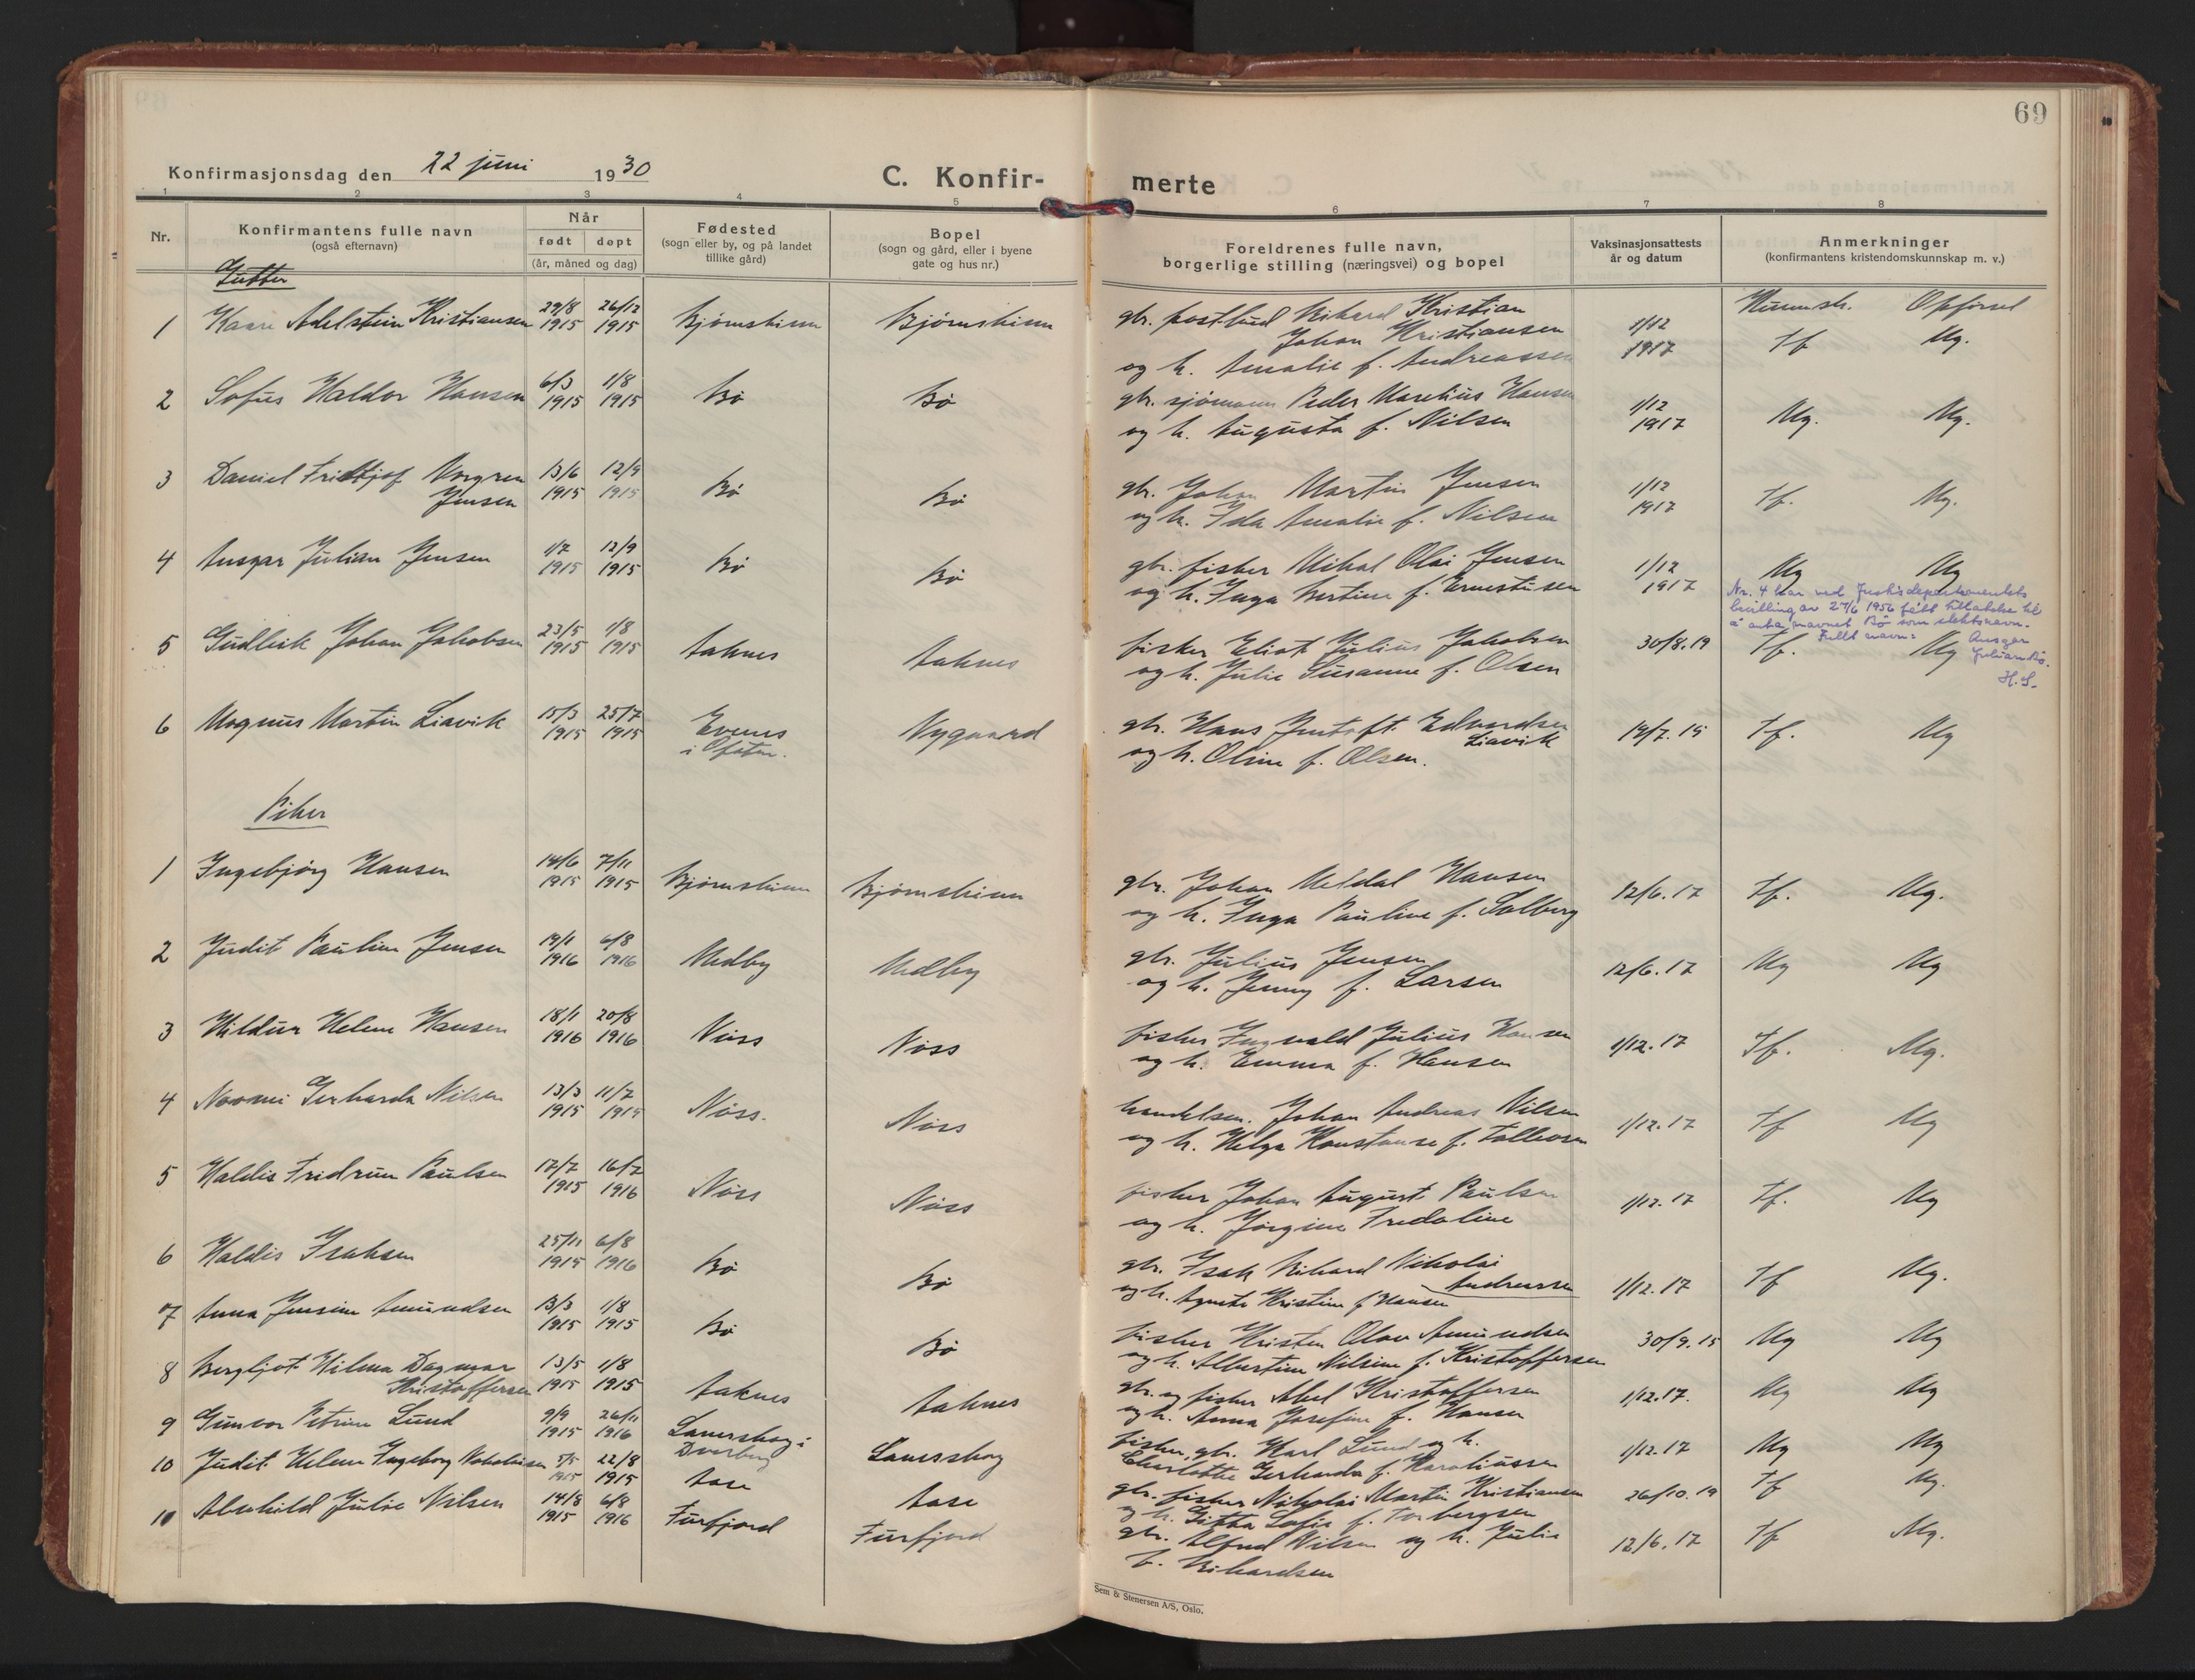 69
Konfirmasjonsdag den 22 juni 1930
C. Konfir- merte
1 2 3 4 5 6 7 8
Nr. Konfirmantens fulle navn (også efternavn) Når født døpt (år, måned og dag) Fødested (sogn eller by, og på landet tillike gård) Bopel (sogn og gård, eller i byene gate og hus nr.) Foreldrenes fulle navn, borgerlige stilling (næringsvei) og bopel Vaksinasjonsattests år og datum Anmerkninger (konfirmantens kristendomskunnskap m. v.)
Gutter
Opførsel
1 Kaare Adelstein Kristiansen 29/8 1915 26/12 1915 Bjørnskinn Bjørnskinn gbr. Rikard Kristian
Johan Kristiansen 1/12 1917 Tf Mg.
og h. Amalie f. Andreassen
2 Sofus Haldor Hansen 6/3 1915 1/8 1915 Bø Bø gbr. sjømann Peder Marelius Hansen
og h. Augusta f. Nilsen 1/12 1917 Mg. Mg.
3 Daniel Fridtjof Norgren
Jensen 13/6 1915 12/9 1915 Bø Bø gbr. Johan Martin Jensen
og h. Ida Amalie f. Nilsen 1/12 1917 Tf. Mg.
4 Ansgar Julian Jensen 1/7 1915 12/9 1915 Bø Bø gbr. fisker Mikal Olai Jensen
og h. Inga Bertine f. Ernestusen 1/12 1917 Mg Mg
Nr. 4 har ved Justisdepartementets
bevilling av 27/6 1956 fått tillatelse til
å anta navnet Bø som slektsnavn.
Fullt navn: Ansgar
Julian Bø.
H.S.
5 Gudleik Johan Jakobsen 23/5 1915 1/8 1915 Aaknes Aaknes fisker Eliot Julius Jakobsen
og h. Julie Susanne f. Olsen 30/8.19 Tf. Mg
6 Magnus Martin Liavik 15/3 1915 25/7 1915 Evenes
i Ofoten. Nygaard gbr. Hans Edvardsen
Liavik
og h. Oline f. Olsen. 19/7.15 Tf. Mg
Piker
1 Ingebjørg Hansen 14/6 1915 7/11 1915 Bjørnskinn Bjørnskinn gbr. Johan Meldal Hansen
og h. Inga Pauline f. Solberg 12/6.17 Tf. Mg.
2 Judit Pauline Jensen 19/1 1916 6/8 1916 Medby Medby gbr. Julius Jensen
og h. Jenny f. Larsen 12/6.17 Mg Mg
3 Hildur Helene Hansen 18/1 1916 20/8 1916 Nöss Nöss fisker Ingvald Julius Hansen
og h. Emma f. Hansen 1/12.17 Tf. Mg.
4 Noomi Gerharda Nilsen 13/3 1915 11/7 1915 Nöss. Nöss handelsm. Johan Andreas Nilsen
og h. Helga Konstanse f. Tollevsen 1/12.17 Tf Mg
5 Haldis Fridrun Paulsen 17/7 1915 16/7 1916 Nöss Nöss fisker Johan August Paulsen
og h. Jørgine Fredoline 1/12.17 Tf. Mg
6 Haldis Isaksen 25/11 1915 6/8 1916 Bø Bø gbr. Isak Rikard Nikolai
Andreassen
og h. Agnete Kristine f. Hansen 1/12.17 Tf Mg.
7 Anna Jensine Amundsen 13/3 1915 1/8 1915 Bø Bø fisker Kristen Olav Amundsen
og h. Albertine Nilsine f. Kristoffersen 30/9.15 Mg Mg
8 Bergljot Hilma Dagmar
Kristoffersen 13/5 1915 1/8 1915 Aaknes Aaknes gbr. og fisker Abel Kristoffersen
og h. Anna Josefine f. Hansen 1/12.17. Mg Mg
9 Gunvor Petrine Lund 9/9 1915 26/11 1916 Lanesskog i
Dverberg Lanesskog fisker, gbr. Karl Lund og h.
Charlotte Gerharda f. Karoliussen 1/12.17 Mg Mg
10 Judit Helene Ingeborg 5/5 1915 22/8 1915 Aase Aase gbr. fisker Nikolai Martin Kristiansen
og h. Gitta Sofie f. Torbergsen 26/10.19 Tf Mg.
10 Alvhild Julie Nilsen 14/8 1915 6/8 1916 Furfjord Furfjord gbr. Alfred Nilsen og h. Julie
f. Rikardsen 12/6.17 Tf Mg.
Sem & Stenersen A/S, Oslo.